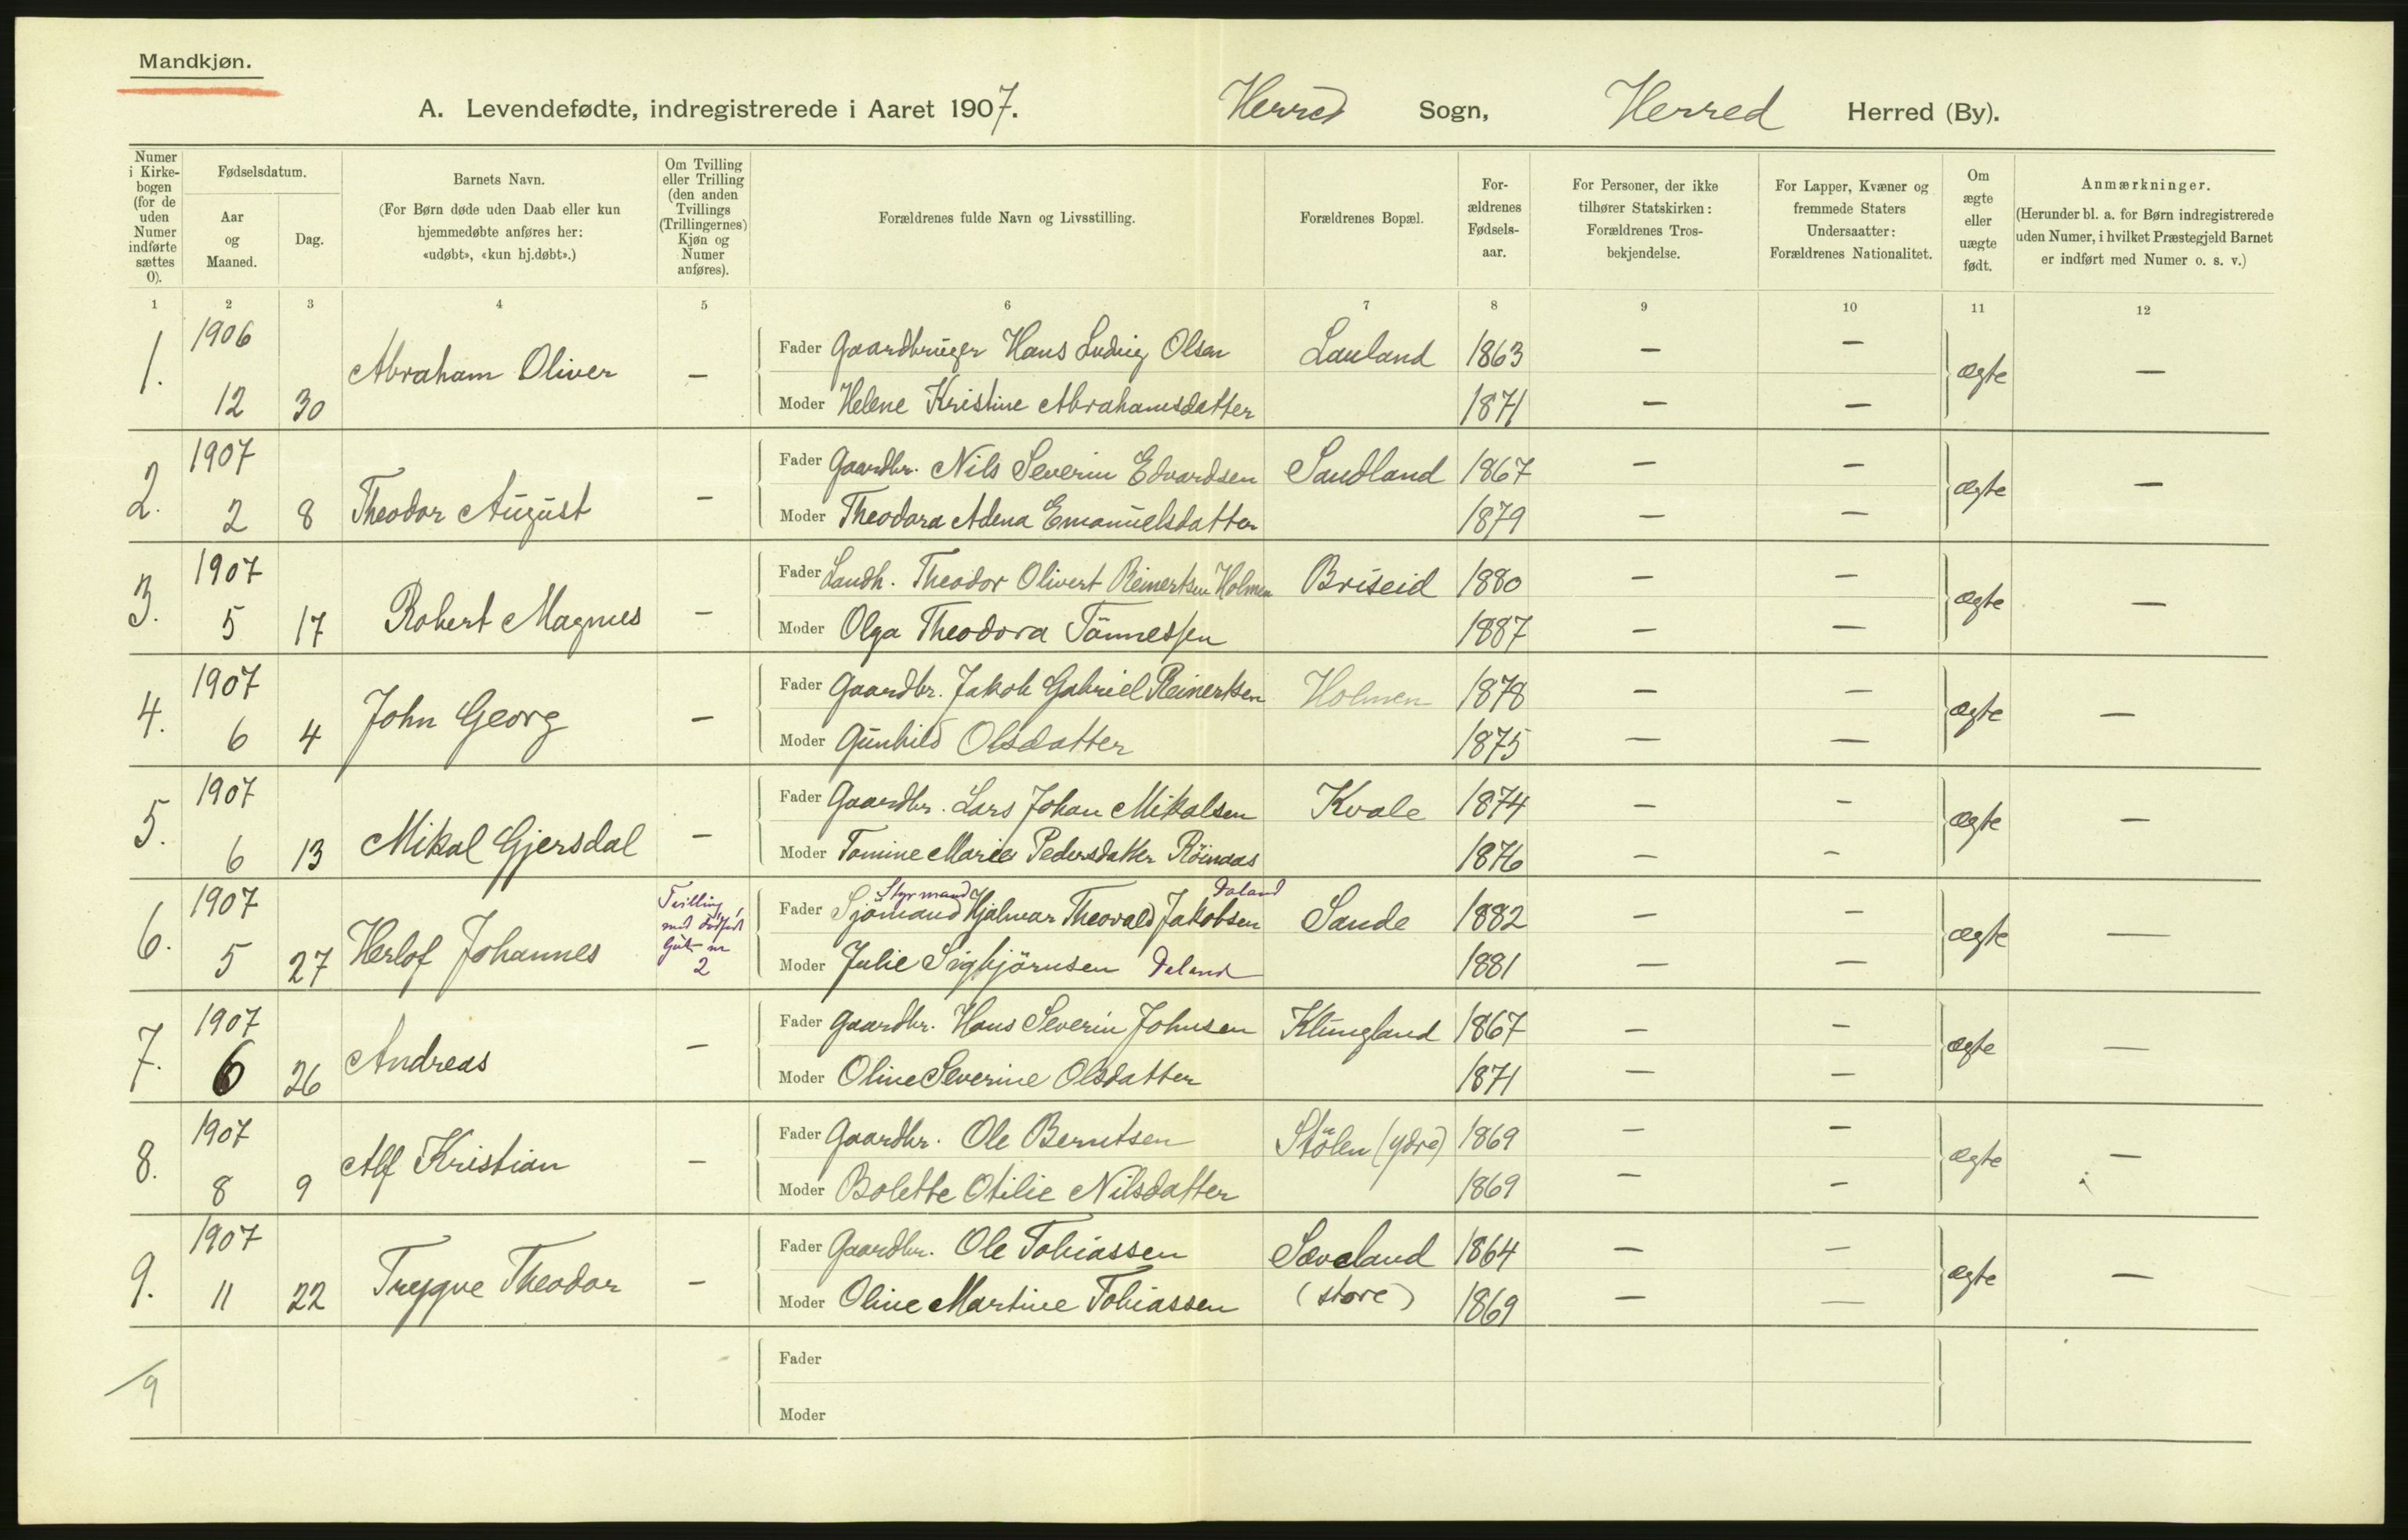 Mandkjøn.
A. Levendefødte, indregistrerede i Aaret 1907. Herred Sogn, Herred Herred (By).
Numer i Kirkebogen (for de uden Numer indførte sættes 0).
Fødselsdatum.
Aar og Maaned.
Dag.
Barnets Navn.
(For Børn døde uden Daab eller kun hjemmedøbte anføres her: «udøbt», «kun hj.døbt».)
Om Tvilling eller Trilling (den anden Tvillings (Trillingernes) Kjøn og Numer anføres).
Forældrenes fulde Navn og Livsstilling.
Forældrenes Bopæl.
For-ældrenes Fødsels-aar.
For Personer, der ikke tilhører Statskirken: Forældrenes Tros-bekjendelse.
For Lapper, Kvæner og fremmede Staters Undersaatter: Forældrenes Nationalitet.
Om ægte eller uægte født.
Anmærkninger.
(Herunder bl. a. for Børn indregistrerede uden Numer, i hvilket Præstegjeld Barnet er indført med Numer o. s. v.)
1 2 3 4 5 6 7 8 9 10 11 12
1. 1906 12 30 Abraham Oliver — Fader Gaardbruger Hans Ludvig Olsen Lauland 1863 — — ægte —
Moder Helene Kristine Abrahamsdatter 1871 — —
2. 1907 2 8 Theodor August — Fader Gaardbr. Nils Severin Edvardsen Sandland 1867 — — ægte —
Moder Theodora Adena Emanuelsdatter 1879 — —
3. 1907 5 17 Robert Magnus — Fader Landh. Theodor Olivert Reinertsen Holmen Briseid 1880 — — ægte —
Moder Olga Theodora Tönnessen 1887 — —
4. 1907 6 4 John Georg — Fader Gaardbr. Jakob Gabriel Reinertsen Holmen 1878 — — ægte —
Moder Gunhild Olsdatter 1875 — —
5. 1907 6 13 Mikal Gjersdal — Fader Gaardbr. Lars Johan Mikalsen Kvale 1874 — — ægte —
Moder Tomine Marie Pedersdatter 1876 — —
6. 1907 5 27 Herlof Johannes Tvilling med dødfødt Gut nr 2 Fader Sjömand Styrmand Hjalmar Theovald Jakobsen Daland Sande 1882 — — ægte —
Moder Julie Sigbjörnsen Daland 1881 — —
7. 1907 6 26 Andreas — Fader Gaardbr. Hans Severin Johnsen Klungland 1867 — — ægte —
Moder Oline Severine Olsdatter 1871 — —
8. 1907 8 9 Alf Kristian — Fader Gaardbr. Ole Berntsen Stölen (ydre) 1869 — — ægte —
Moder Bolette Otilie Nilsdatter 1869 — —
9. 1907 11 22 Trygve Theodor — Fader Gaardbr. Ole Tobiassen Sæveland 1864 — — ægte —
Moder Oline Martine Tobiassen (store) 1869 — —
/9 Fader
Moder